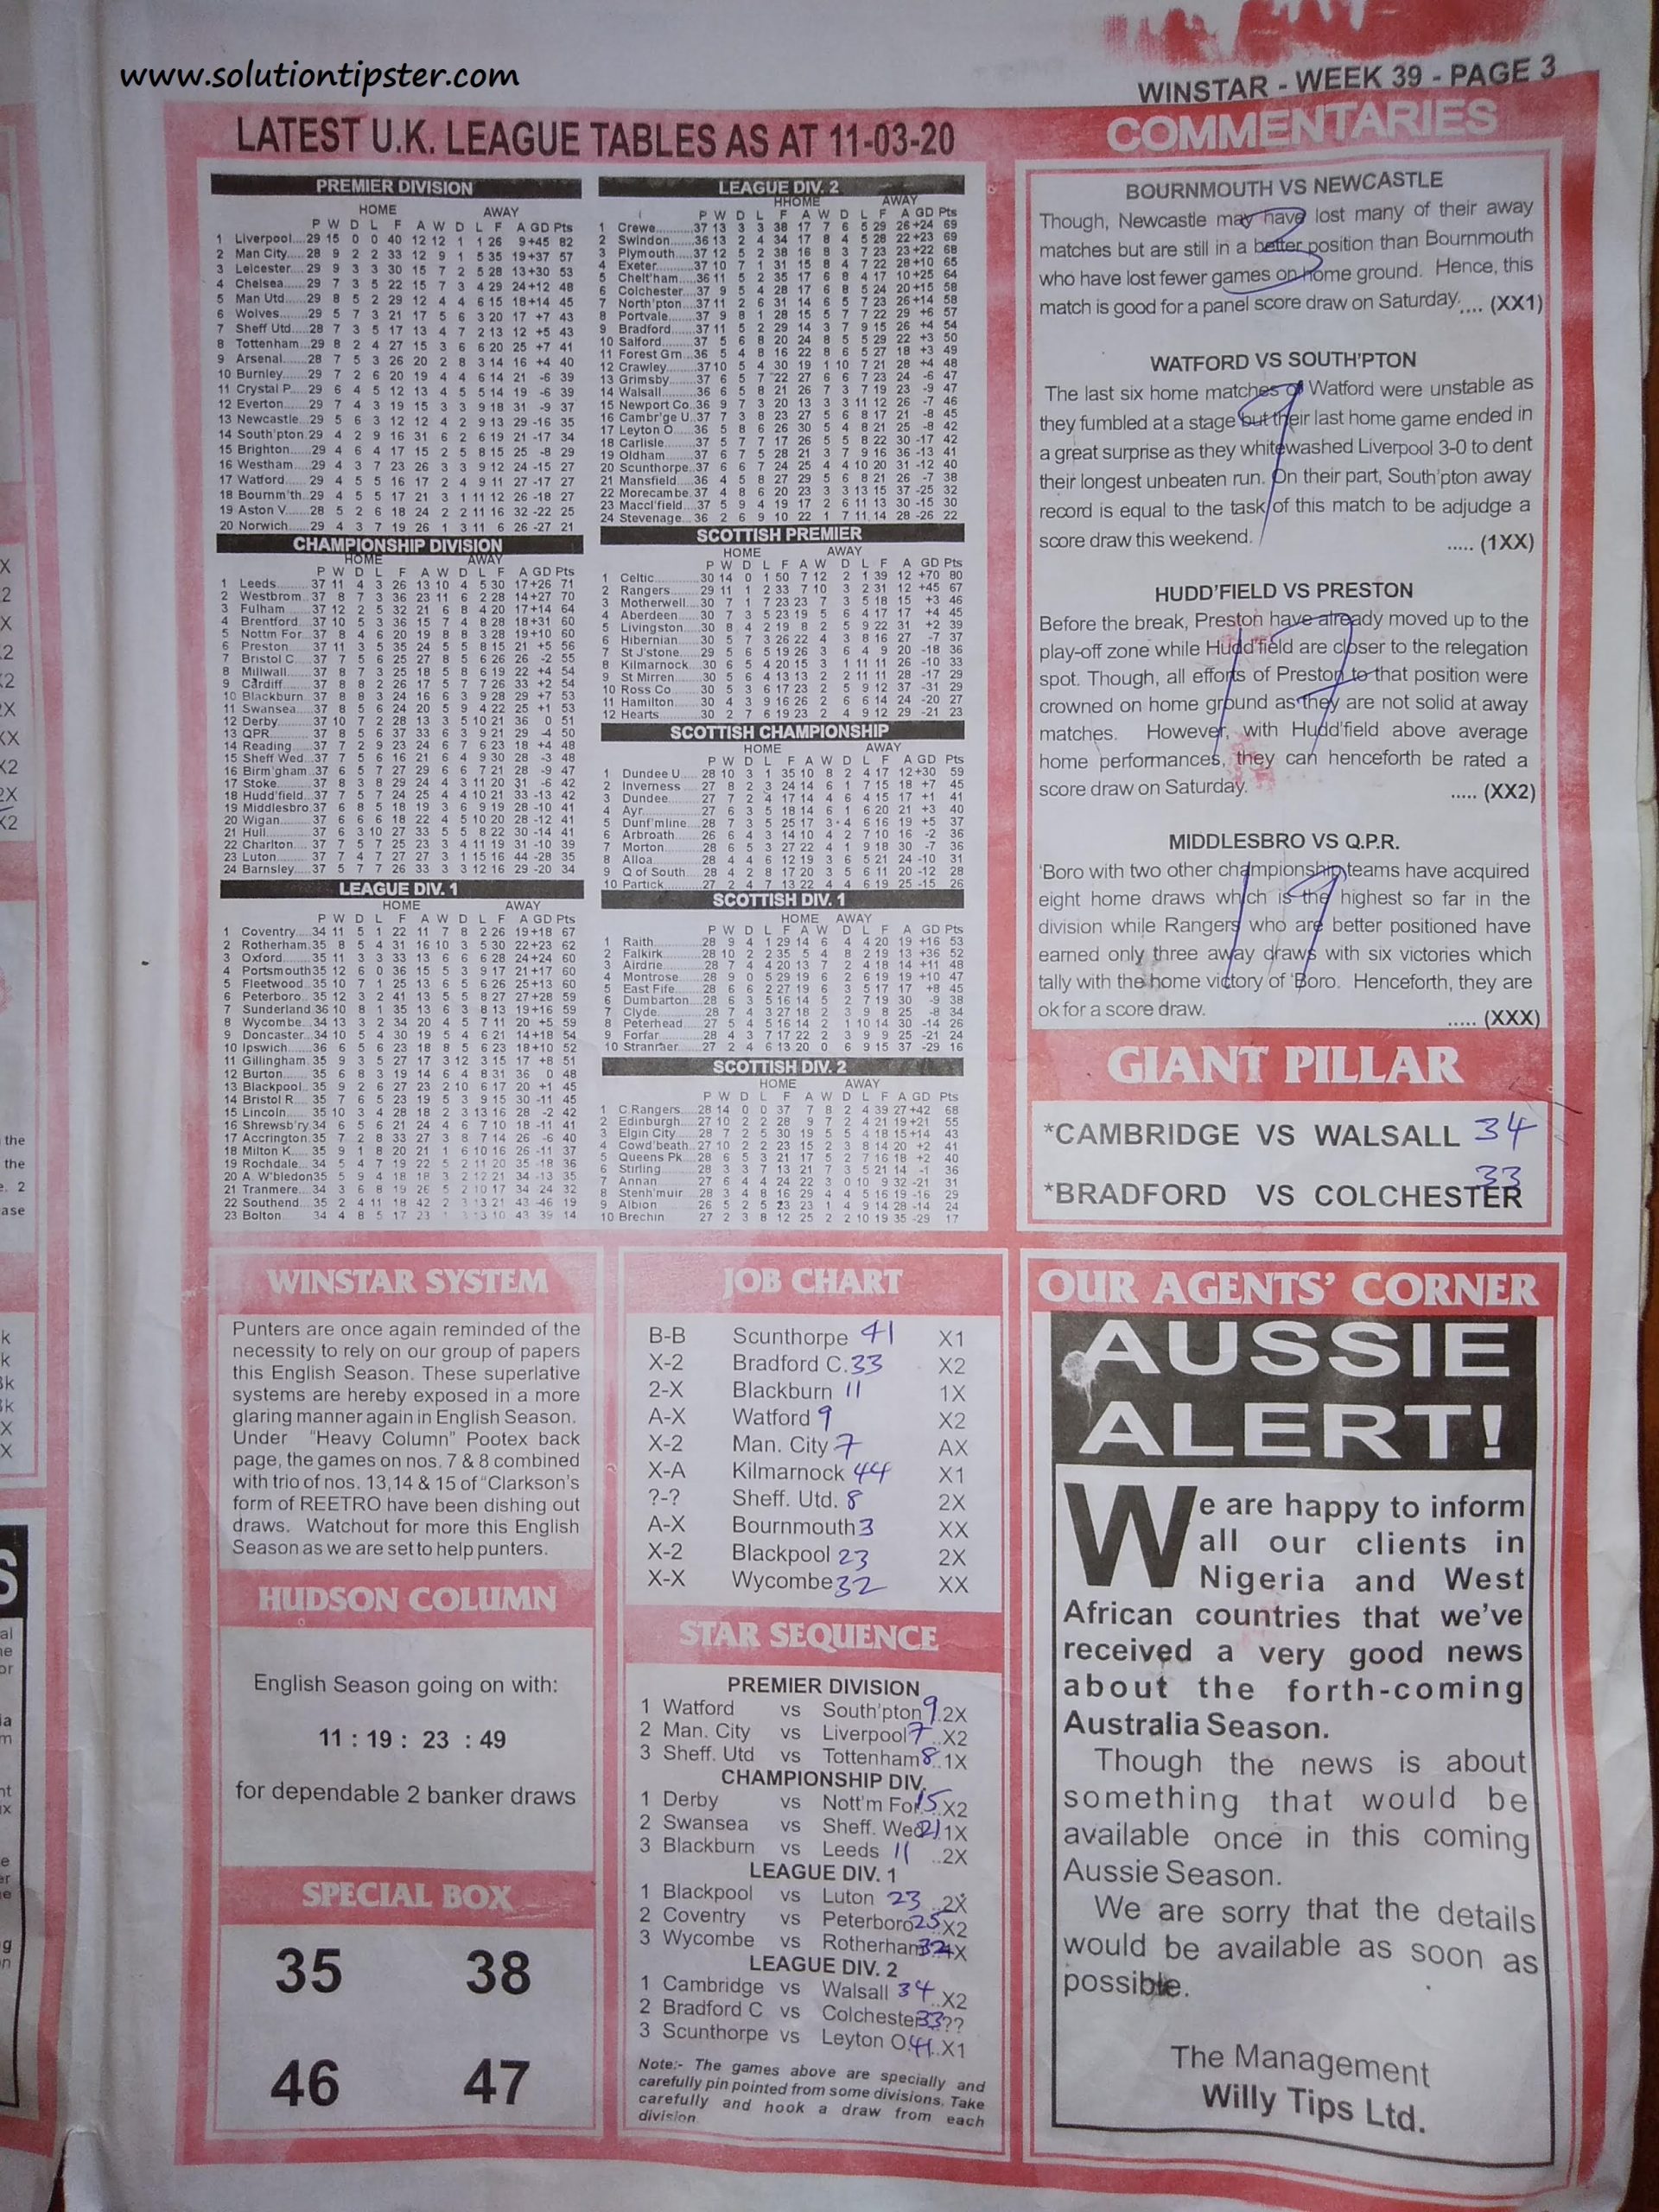 www.solutiontipster.com
WINSTAR - WEEK 39 - PAGE 3
LATEST U.K. LEAGUE TABLES AS AT 11-03-20
PREMIER DIVISION
HOME AWAY
P W D L F A W D L F A GD Pts
1 Liverpool....29 15 0 0 40 12 12 1 1 26 9+45 82
2 Man City.....28 9 2 2 33 12 9 1 5 35 19+37 57
3 Leicester....29 9 3 3 30 15 7 2 5 28 13+30 53
4 Chelsea......29 7 3 5 22 15 7 3 4 29 24+12 48
5 Man Utd.....29 8 5 2 29 12 4 4 6 15 18+14 45
6 Wolves.......29 5 7 3 21 17 5 6 3 20 17 +7 43
7 Sheff Utd....28 7 3 5 17 13 4 7 2 13 12 +5 43
8 Tottenham...29 8 2 4 27 15 3 6 6 20 25 +7 41
9 Arsenal......28 7 5 3 26 20 2 8 3 14 16 +4 40
10 Burnley......29 7 2 6 20 19 4 4 6 14 21 -6 39
11 Crystal P....29 6 4 5 12 13 4 5 5 14 19 -6 39
12 Everton......29 7 4 3 19 15 3 3 9 18 31 -9 37
13 Newcastle..29 5 6 3 12 12 4 2 9 13 29 -16 35
14 South'pton.29 4 2 9 16 31 6 2 6 19 21 -17 34
15 Brighton.....29 4 6 4 17 15 2 5 8 15 25 -8 29
16 Westham...29 4 3 7 23 26 3 3 9 12 24 -15 27
17 Watford.....29 4 5 5 16 17 2 4 9 11 27 -17 27
18 Bournm'th..29 4 5 5 17 21 3 1 11 12 26 -18 27
19 Aston V......28 5 2 6 18 24 2 2 11 16 32 -22 25
20 Norwich.....29 4 3 7 19 26 1 3 11 6 26 -27 21
CHAMPIONSHIP DIVISION
HOME AWAY
P W D L F A W D L F A GD Pts
1 Leeds........37 11 4 3 26 13 10 4 5 30 17+26 71
2 Westbrom...37 8 7 3 36 23 11 6 2 28 14+27 70
3 Fulham.......37 12 2 5 32 21 6 8 4 20 17+14 64
4 Brentford....37 10 5 3 36 15 7 4 8 28 18+31 60
5 Nottm For...37 8 4 6 20 19 8 8 3 28 19+10 60
6 Preston......37 11 3 5 35 24 5 5 8 15 21 +5 56
7 Bristol C.....37 7 5 6 25 27 8 5 6 26 26 -2 55
8 Millwall.......37 8 7 3 25 18 5 8 6 19 22 +4 54
9 Cardiff........37 8 8 2 26 17 5 7 7 26 33 +2 54
10 Blackburn...37 8 8 3 24 16 6 3 9 28 29 +7 53
11 Swansea....37 8 5 6 24 20 5 9 4 22 25 +1 53
12 Derby.........37 10 7 2 28 13 3 5 10 21 36 0 51
13 QPR..........37 8 5 6 37 33 6 3 9 21 29 -4 50
14 Reading.....37 7 2 9 23 24 6 7 6 23 18 +4 48
15 Sheff Wed...37 7 5 6 16 21 6 4 9 30 28 -3 48
16 Birm'gham..37 6 5 7 27 29 6 6 7 21 28 -9 47
17 Stoke........37 8 3 8 29 24 4 3 11 20 31 -6 42
18 Hudd'field...37 7 5 7 24 25 4 4 10 21 33 -13 42
19 Middlesbro.37 6 8 5 18 19 3 6 9 19 28 -10 41
20 Wigan.......37 6 6 6 18 22 4 5 10 20 28 -12 41
21 Hull...........37 6 3 10 27 33 5 5 8 22 30 -14 41
22 Charlton.....37 7 5 7 25 23 3 4 11 19 31 -10 39
23 Luton........37 7 4 7 27 27 3 1 15 16 44 -28 35
24 Barnsley.....37 5 7 7 26 33 3 3 12 16 29 -20 34
LEAGUE DIV. 1
HOME AWAY
P W D L F A W D L F A GD Pts
1 Coventry....34 11 5 1 22 11 7 8 2 26 19+18 67
2 Rotherham.35 8 5 4 31 16 10 3 5 30 22+23 62
3 Oxford.......35 11 3 3 33 13 6 6 6 28 24+24 60
4 Portsmouth35 12 6 0 36 15 5 3 9 17 21+17 60
5 Fleetwood...35 10 7 1 25 13 6 5 6 26 25+13 60
6 Peterboro...35 12 3 2 41 13 5 5 8 27 27+28 59
7 Sunderland 36 10 8 1 35 13 6 3 8 13 19+16 59
8 Wycombe...34 13 3 2 34 20 4 5 7 11 20 +5 59
9 Doncaster..34 10 5 4 30 19 5 4 6 21 14+18 54
10 Ipswich......36 6 5 6 23 18 8 5 6 23 18+10 52
11 Gillingham..35 9 3 5 27 17 3 12 3 15 17 +8 51
12 Burton.......35 6 8 3 19 14 6 4 8 31 36 0 48
13 Blackpool...35 9 2 6 27 23 2 10 6 17 20 +1 45
14 Bristol R.....35 7 6 5 23 19 5 3 9 15 30 -11 45
15 Lincoln......35 10 3 4 28 18 2 3 13 16 28 -2 42
16 Shrewsb'ry.34 6 5 6 21 24 4 6 7 10 18 -11 41
17 Accrington.35 7 2 8 33 27 3 8 7 14 26 -6 40
18 Milton K.....35 9 1 8 20 21 1 6 10 16 26 -11 37
19 Rochdale...34 5 4 7 19 22 5 2 11 20 35 -18 36
20 A. W'bledon35 5 9 4 18 18 3 2 12 21 34 -13 35
21 Tranmere...34 3 6 8 19 26 5 2 10 17 34 24 32
22 Southend...35 2 4 11 18 42 2 3 13 21 43 -46 19
23 Bolton
LEAGUE DIV. 2
HHOME AWAY
P W D L F A W D L F A GD Pts
1 Crewe..........37 13 3 3 38 17 7 6 5 29 26+24 69
2 Swindon.......36 13 2 4 34 17 8 4 5 28 22+23 69
3 Plymouth......37 12 5 2 38 16 8 3 7 23 23+22 68
4 Exeter..........37 10 7 1 31 15 8 4 7 22 28+10 65
5 Chelt'ham.....36 11 5 2 35 17 6 8 4 17 10+25 64
6 Colchester....37 9 5 4 28 17 6 8 5 24 20+15 58
7 North'pton....37 11 2 6 31 14 6 5 7 23 26+14 58
8 Portvale.......37 9 8 1 28 15 5 7 7 22 29 +6 57
9 Bradford.......37 11 5 2 29 14 3 7 9 15 26 +4 54
10 Salford........37 5 6 8 20 24 8 5 5 29 22 +3 50
11 Forest Grn...36 5 4 8 16 22 8 6 5 27 18 +3 49
12 Crawley......37 10 5 4 30 19 1 10 7 21 28 +4 48
13 Grimsby......37 6 5 7 22 27 6 6 7 23 24 -6 47
14 Walsall.......36 6 5 8 21 26 7 3 7 19 23 -9 47
15 Newport Co..36 9 7 3 20 13 3 3 11 12 26 -7 46
16 Cambr'ge U.37 7 3 8 23 27 5 6 8 17 21 -8 45
17 Leyton O.....36 5 8 6 26 30 5 4 8 21 25 -8 42
18 Carlisle.......37 5 7 7 17 26 5 5 8 22 30 -17 42
19 Oldham.......37 6 7 5 28 21 3 7 9 16 36 -13 41
20 Scunthorpe..37 6 6 7 24 25 4 4 10 20 31 -12 40
21 Mansfield....36 4 5 8 27 29 5 6 8 21 26 -7 38
22 Morecambe.37 4 8 6 20 23 3 3 13 15 37 -25 32
23 Maccl'field...37 5 9 4 19 17 2 6 11 13 30 -15 30
24 Stevenage...36 2 6 9 10 22 1 7 11 14 28 -26 22
SCOTTISH PREMIER
HOME AWAY
P W D L F A W D L F A GD Pts
1 Celtic..........30 14 0 1 50 7 12 2 1 39 12 +70 80
2 Rangers......29 11 1 2 33 7 10 3 2 31 12 +45 67
3 Motherwell...30 7 1 7 23 23 7 3 5 18 15 +3 46
4 Aberdeen....30 7 3 5 23 19 5 6 4 17 17 +4 45
5 Livingston...30 8 4 2 19 8 2 5 9 22 31 +2 39
6 Hibernian....30 5 7 3 26 22 4 3 8 16 27 -7 37
7 St J'stone....29 5 6 5 19 26 3 6 4 9 20 -18 36
8 Kilmarnock..30 6 5 4 20 15 3 1 11 11 26 -10 33
9 St Mirren.....30 5 6 4 13 13 2 2 11 11 28 -17 29
10 Ross Co....30 5 3 6 17 23 2 5 9 12 37 -31 29
11 Hamilton....30 4 3 9 16 26 2 6 6 14 24 -20 27
12 Hearts.......30 2 7 6 19 23 2 4 9 12 29 -21 23
SCOTTISH CHAMPIONSHIP
HOME AWAY
P W D L F A W D L F A GD Pts
1 Dundee U.....28 10 3 1 35 10 8 2 4 17 12+30 59
2 Inverness.....27 8 2 3 24 14 6 1 7 15 18 +7 45
3 Dundee........27 7 2 4 17 14 4 6 4 15 17 +1 41
4 Ayr..............27 6 3 5 18 14 6 1 6 20 21 +3 40
5 Dunf'mline....28 7 3 5 25 17 3 4 6 16 19 +5 37
6 Arbroath......26 6 4 3 14 10 4 2 7 10 16 -2 36
7 Morton.........28 6 5 3 27 22 4 1 9 18 30 -7 36
8 Alloa...........28 4 4 6 12 19 3 6 5 21 24 -10 31
9 Q of South....28 4 2 8 17 20 3 5 6 11 20 -12 28
10 Partick.......27 2 4 7 13 22 4 4 6 19 25 -15 26
SCOTTISH DIV. 1
HOME AWAY
P W D L F A W D L F A GD Pts
1 Raith...........28 9 4 1 29 14 6 4 4 20 19 +16 53
2 Falkirk.........28 10 2 2 35 5 4 8 2 19 13 +36 52
3 Airdrie.........28 7 4 4 20 13 7 2 4 18 14 +11 48
4 Montrose.....28 9 0 5 29 19 6 2 6 19 19 +10 47
5 East Fife......28 6 6 2 27 19 6 3 5 17 17 +8 45
6 Dumbarton..28 6 3 5 16 14 5 2 7 19 30 -9 38
7 Clyde..........28 7 4 3 27 18 2 3 9 8 25 -8 34
8 Peterhead....27 5 4 5 16 14 2 1 10 14 30 -14 26
9 Forfar.........28 4 3 7 17 22 2 3 9 9 25 -21 24
10 Stranraer....27 2 4 6 13 20 0 6 9 15 37 -29 16
SCOTTISH DIV. 2
HOME AWAY
P W D L F A W D L F A GD Pts
1 C.Rangers....28 14 0 0 37 7 8 2 4 39 27 +42 68
2 Edinburgh....27 10 2 2 28 9 7 2 4 21 19 +21 55
3 Elgin City.....28 7 2 5 30 19 5 5 4 18 15 +14 43
4 Cowd'beath..27 10 2 2 23 15 2 3 8 14 20 +2 41
5 Queens Pk...28 6 5 3 21 17 5 2 7 16 18 +2 40
6 Stirling........28 3 3 7 13 21 7 3 5 21 14 -1 36
7 Annan.........27 6 4 4 24 22 3 0 10 9 32 -21 31
8 Stenh'muir...28 3 4 8 16 29 4 4 5 16 19 -16 29
9 Albion.........26 5 2 5 23 23 1 4 9 14 28 -14 24
10 Brechin......27 2 3 8 12 25 2 2 10 19 35 -29 17
COMMENTARIES
BOURNMOUTH VS NEWCASTLE
3
Though, Newcastle may have lost many of their away
matches but are still in a better position than Bournmouth
who have lost fewer games on home ground. Hence, this
match is good for a panel score draw on Saturday.... (XX1)
WATFORD VS SOUTH'PTON
9
The last six home matches of Watford were unstable as
they fumbled at a stage but their last home game ended in
a great surprise as they whitewashed Liverpool 3-0 to dent
their longest unbeaten run. On their part, South'pton away
record is equal to the task of this match to be adjudge a
score draw this weekend.
..... (1XX)
HUDD'FIELD VS PRESTON
17
Before the break, Preston have already moved up to the
play-off zone while Hudd'field are closer to the relegation
spot. Though, all efforts of Preston to that position were
crowned on home ground as they are not solid at away
matches. However, with Hudd'field above average
home performances, they can henceforth be rated a
score draw on Saturday.
..... (XX2)
MIDDLESBRO VS Q.P.R.
19
'Boro with two other championship teams have acquired
eight home draws which is the highest so far in the
division while Rangers who are better positioned have
earned only three away draws with six victories which
tally with the home victory of 'Boro. Henceforth, they are
ok for a score draw.
..... (XXX)
GIANT PILLAR
*CAMBRIDGE VS WALSALL 34
*BRADFORD VS COLCHESTER 33
WINSTAR SYSTEM
Punters are once again reminded of the
necessity to rely on our group of papers
this English Season. These superlative
systems are hereby exposed in a more
glaring manner again in English Season.
Under "Heavy Column" Pootex back
page, the games on nos. 7 & 8 combined
with trio of nos. 13,14 & 15 of "Clarkson's
form of REETRO have been dishing out
draws. Watchout for more this English
Season as we are set to help punters.
HUDSON COLUMN
English Season going on with:
11 : 19 : 23 : 49
for dependable 2 banker draws
SPECIAL BOX
35 38
46 47
JOB CHART
B-B Scunthorpe 41 X1
X-2 Bradford C. 33 X2
2-X Blackburn 11 1X
A-X Watford 9 X2
X-2 Man. City 7 AX
X-A Kilmarnock 44 X1
?-? Sheff. Utd. 8 2X
A-X Bournmouth 3 XX
X-2 Blackpool 23 2X
X-X Wycombe 32 XX
STAR SEQUENCE
PREMIER DIVISION
1 Watford vs South'pton 9.2X
2 Man. City vs Liverpool 7..X2
3 Sheff. Utd vs Tottenham 8.1X
CHAMPIONSHIP DIV.
1 Derby vs Nott'm For. 15..X2
2 Swansea vs Sheff. Wed 21 1X
3 Blackburn vs Leeds 11 ..2X
LEAGUE DIV. 1
1 Blackpool vs Luton 23 ..2X
2 Coventry vs Peterboro 25 X2
3 Wycombe vs Rotherham 32 X
LEAGUE DIV. 2
1 Cambridge vs Walsall 34 ..X2
2 Bradford C vs Colchester 33 ??
3 Scunthorpe vs Leyton O. 41..X1
Note:- The games above are specially and
carefully pin pointed from some divisions. Take
carefully and hook a draw from each
division.
OUR AGENTS' CORNER
AUSSIE
ALERT!
We are happy to inform
all our clients in
Nigeria and West
African countries that we've
received a very good news
about the forth-coming
Australia Season.
Though the news is about
something that would be
available once in this coming
Aussie Season.
We are sorry that the details
would be available as soon as
possible.
The Management
Willy Tips Ltd.